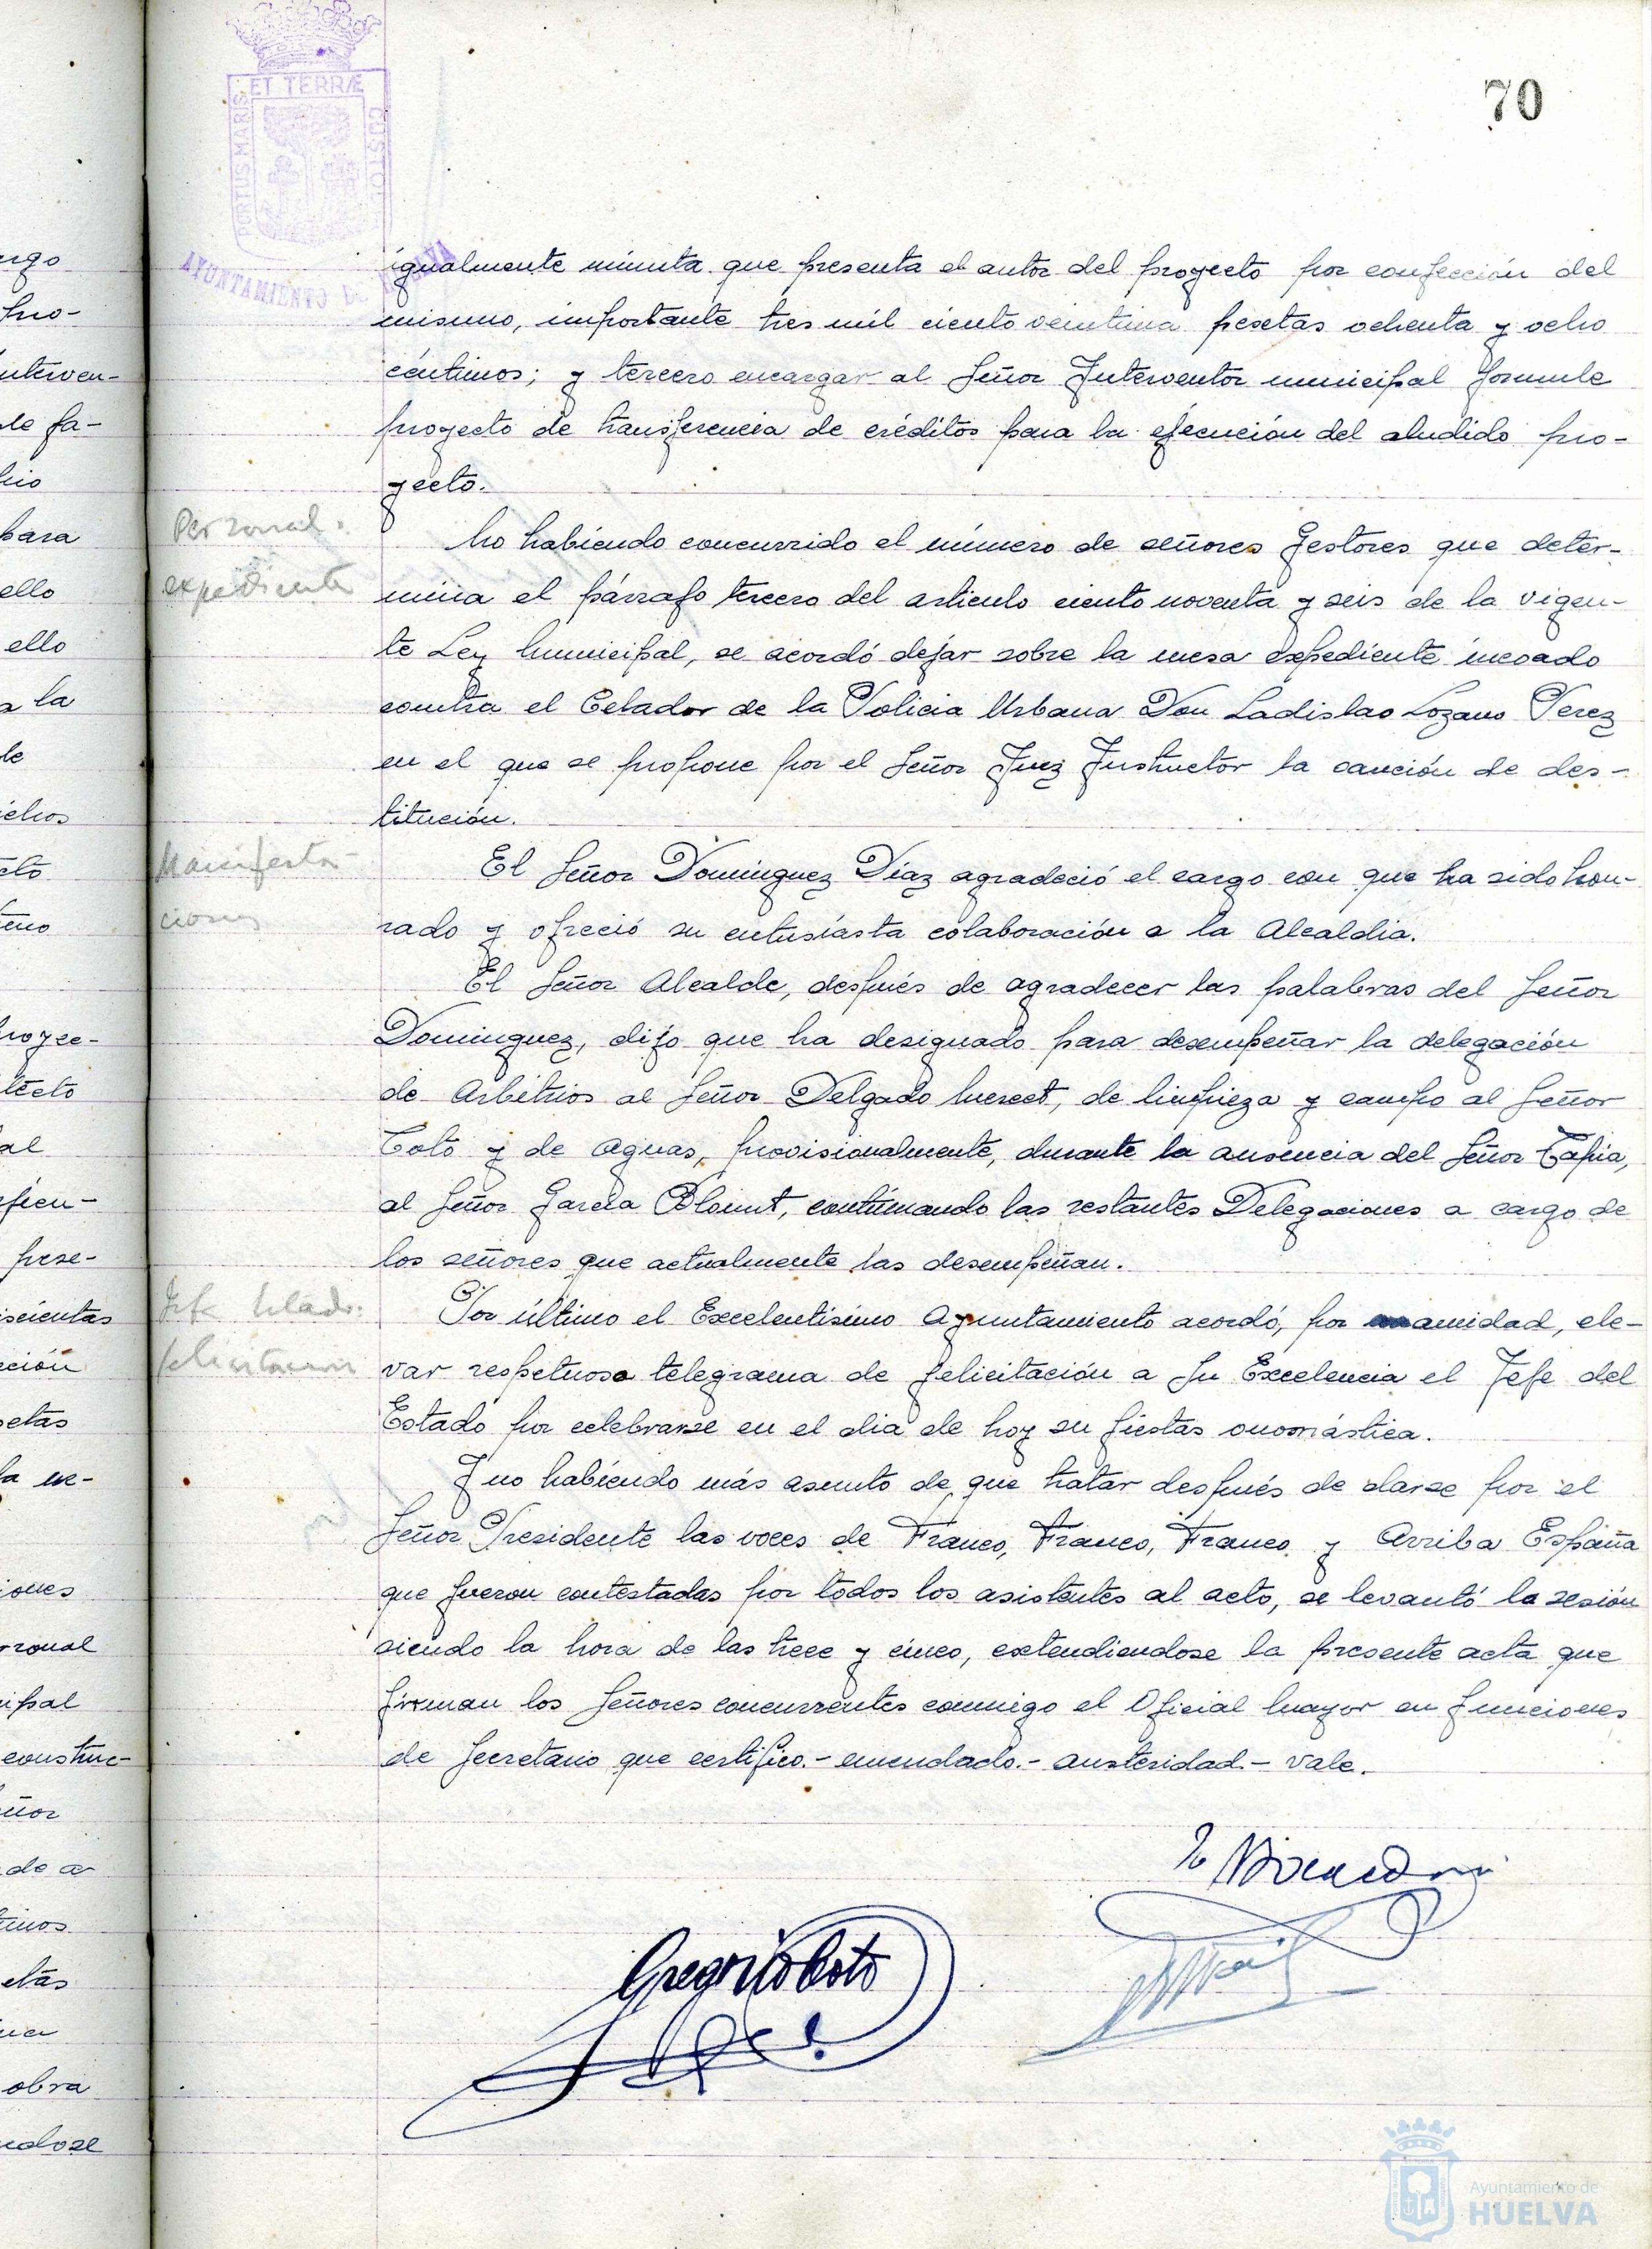 70
ET TERRÆ
PORTUS MARIS
CUSTOD
AYUNTAMIENTO DE HUELVA
igualmente minuta que presenta el autor del proyecto por confección del
mismo, importante tres mil ciento veintiuna pesetas ochenta y ocho
céntimos; y tercero encargar al Señor Interventor municipal formule
proyecto de transferencia de créditos para la ejecución del aludido pro-
yecto.
Personal.
expediente
No habiendo concurrido el número de señores Gestores que deter-
mina el párrafo tercero del articulo ciento noventa y seis de la vigen-
te Ley Municipal, se acordó dejar sobre la mesa expediente incoado
contra el Celador de la Policia Urbana Don Ladislao Lozano Perez
en el que se propone por el Señor Juez Instructor la sanción de des-
titución.
Manifesta-
ciones
El Señor Dominguez Díaz agradeció el cargo con que ha sido hon-
rado y ofreció su entusiasta colaboración a la Alcaldia.
El Señor Alcalde, después de agradecer las palabras del Señor
Dominguez, dijo que ha designado para desempeñar la delegación
de Arbitrios al Señor Delgado Merect, de limpieza y campo al Señor
Coto y de Aguas, provisionalmente, durante la ausencia del Señor Tapia,
al Señor García Blount, continuando las restantes Delegaciones a cargo de
los señores que actualmente las desempeñan.
Jefe Estado.
felicitacion
Por último el Excelentisimo Ayuntamiento acordó, por unanimidad, ele-
var respetuoso telegrama de felicitación a Su Excelencia el Jefe del
Estado por celebrarse en el dia de hoy su fiestas onomástica.
Y no habiendo más asunto de que tratar después de darse por el
Señor Presidente las voces de Franco, Franco, Franco y Arriba España
que fueron contestadas por todos los asistentes al acto, se levantó la sesión
siendo la hora de las trece y cinco, extendiendose la presente acta que
firman los Señores concurrentes conmigo el Oficial Mayor en funciones
de Secretario que certifico.- enmendado.- austeridad.- vale.
Gregorio Coto
Ayuntamiento de
HUELVA